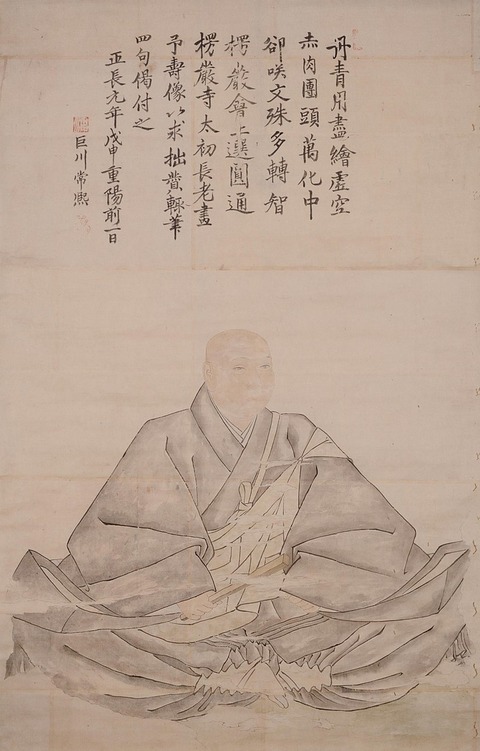 丹青用盡繪虚空
赤肉團頭萬化中
卻咲文殊多轉智
楞嚴會上選圓通
楞嚴寺太初長老畫
予壽像以求拙賛輙筆
四句偈付之
正長元年戊申重陽前一日
巨川常熈